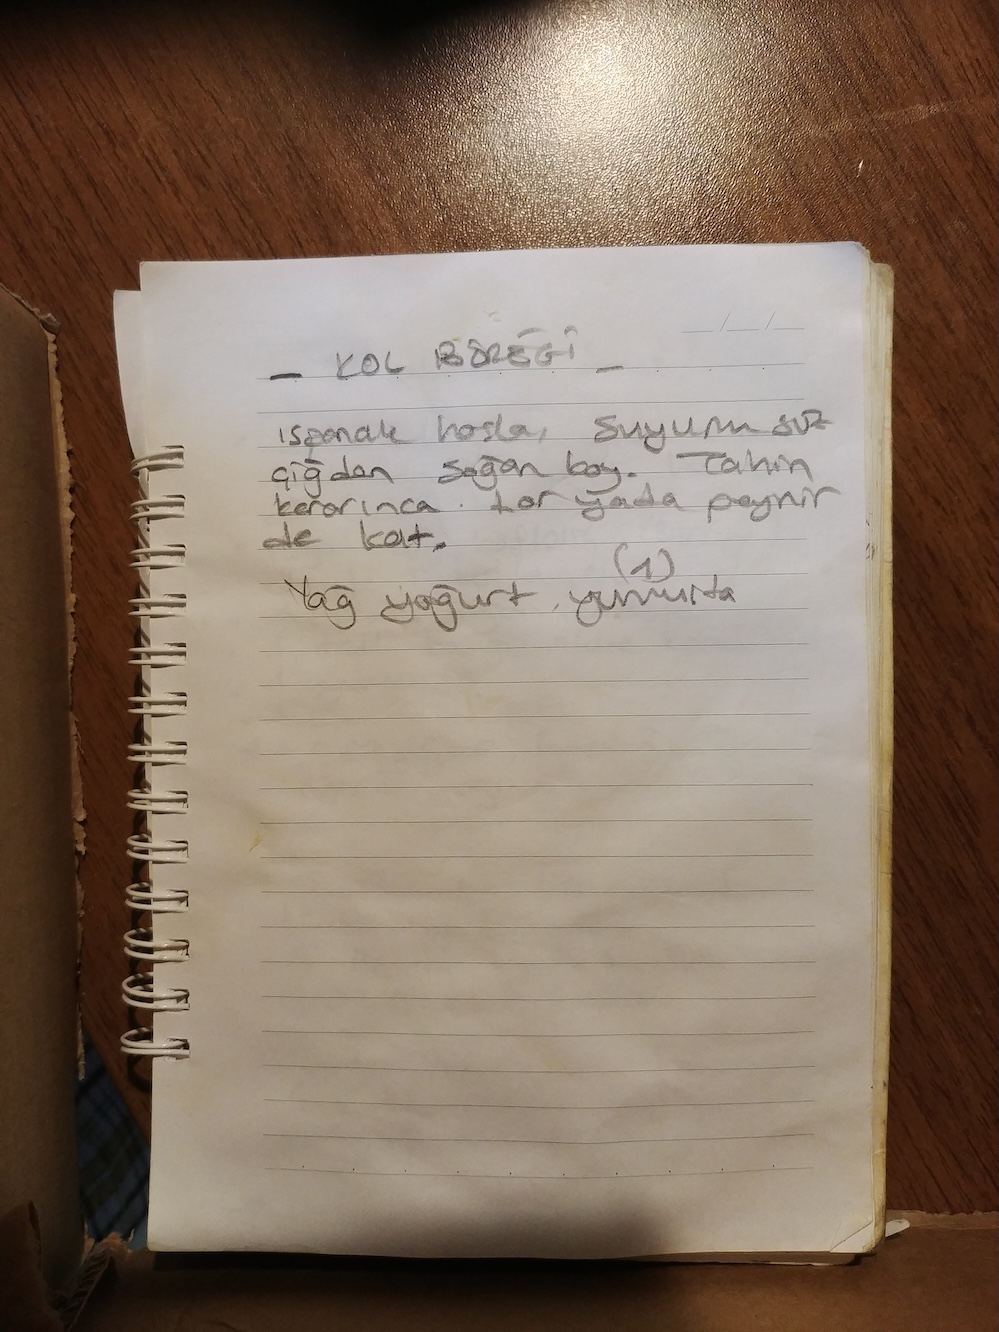 - KOL BÖREĞİ -
ıspanak haşla, suyunu süz
çiğden soğan koy. Tahin
kararınca. Lor yada peynir
de kat.
(1)
Yağ yoğurt, yumurta